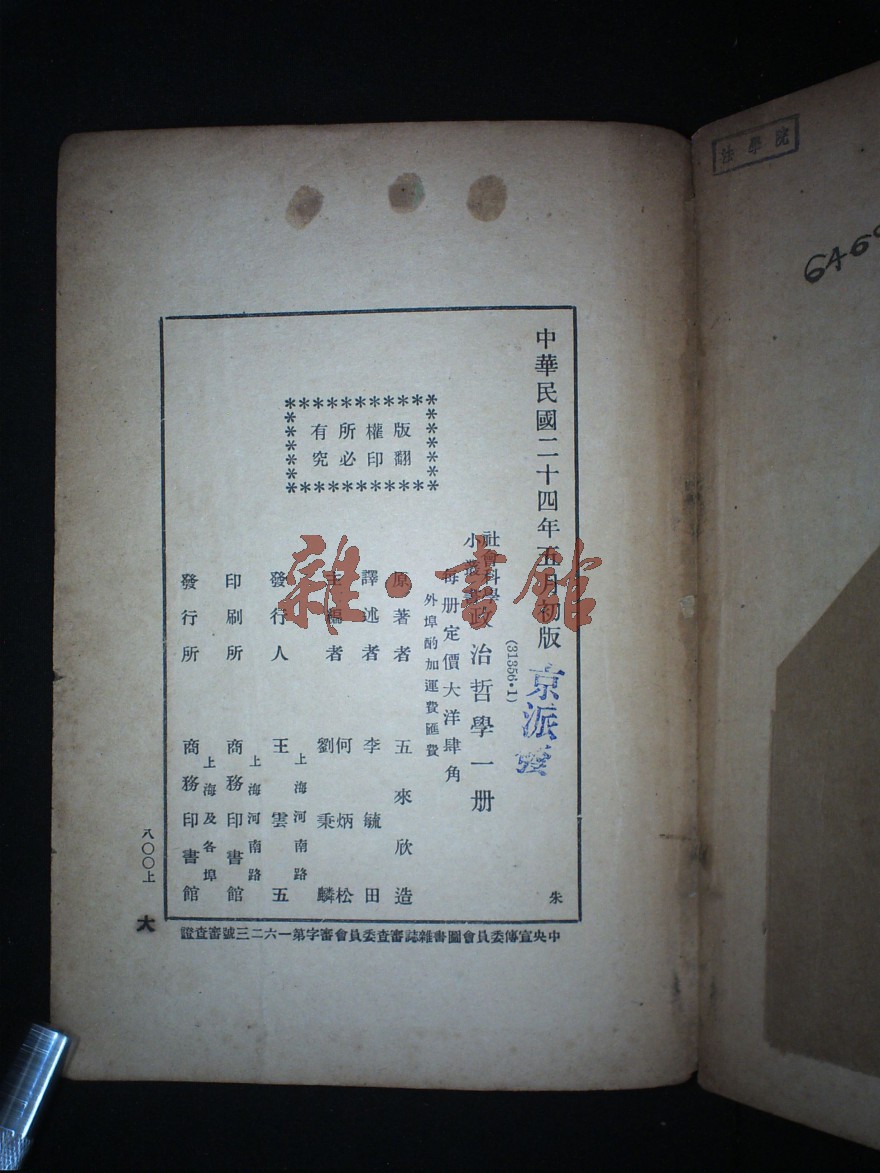 中華民國二十四年五月初版
(31356·1)
京派發
社會科學小叢書
政治哲學一册
每册定價大洋肆角
外埠酌加運費匯費
原著者 五來欣造
譯述者 李毓田
主編者 何炳松
劉秉麟
發行人 王雲五
上海河南路
印刷所 商務印書館
上海河南路
發行所 商務印書館
上海及各埠
版權所有
翻印必究
朱
中央宣傳委員會圖書雜誌審查委員會審查證審字第一六二三號
八〇〇上
大
雜·書館
法學院